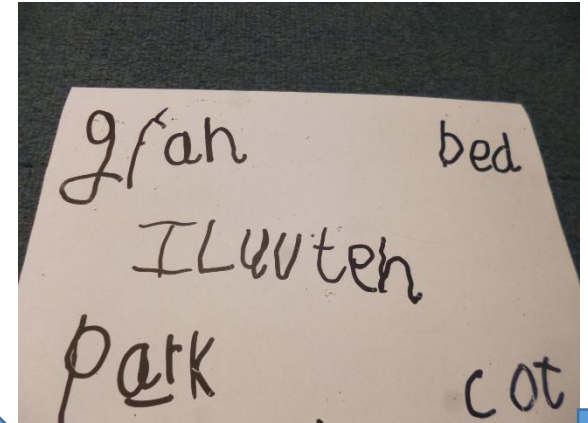 grah bed
I Luv ten
park cot